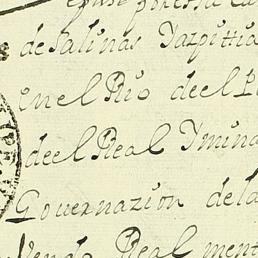 de Salinas Yazpittia
en el Rio de el
de el Real Ymina
Gouernazion de la
Real ment